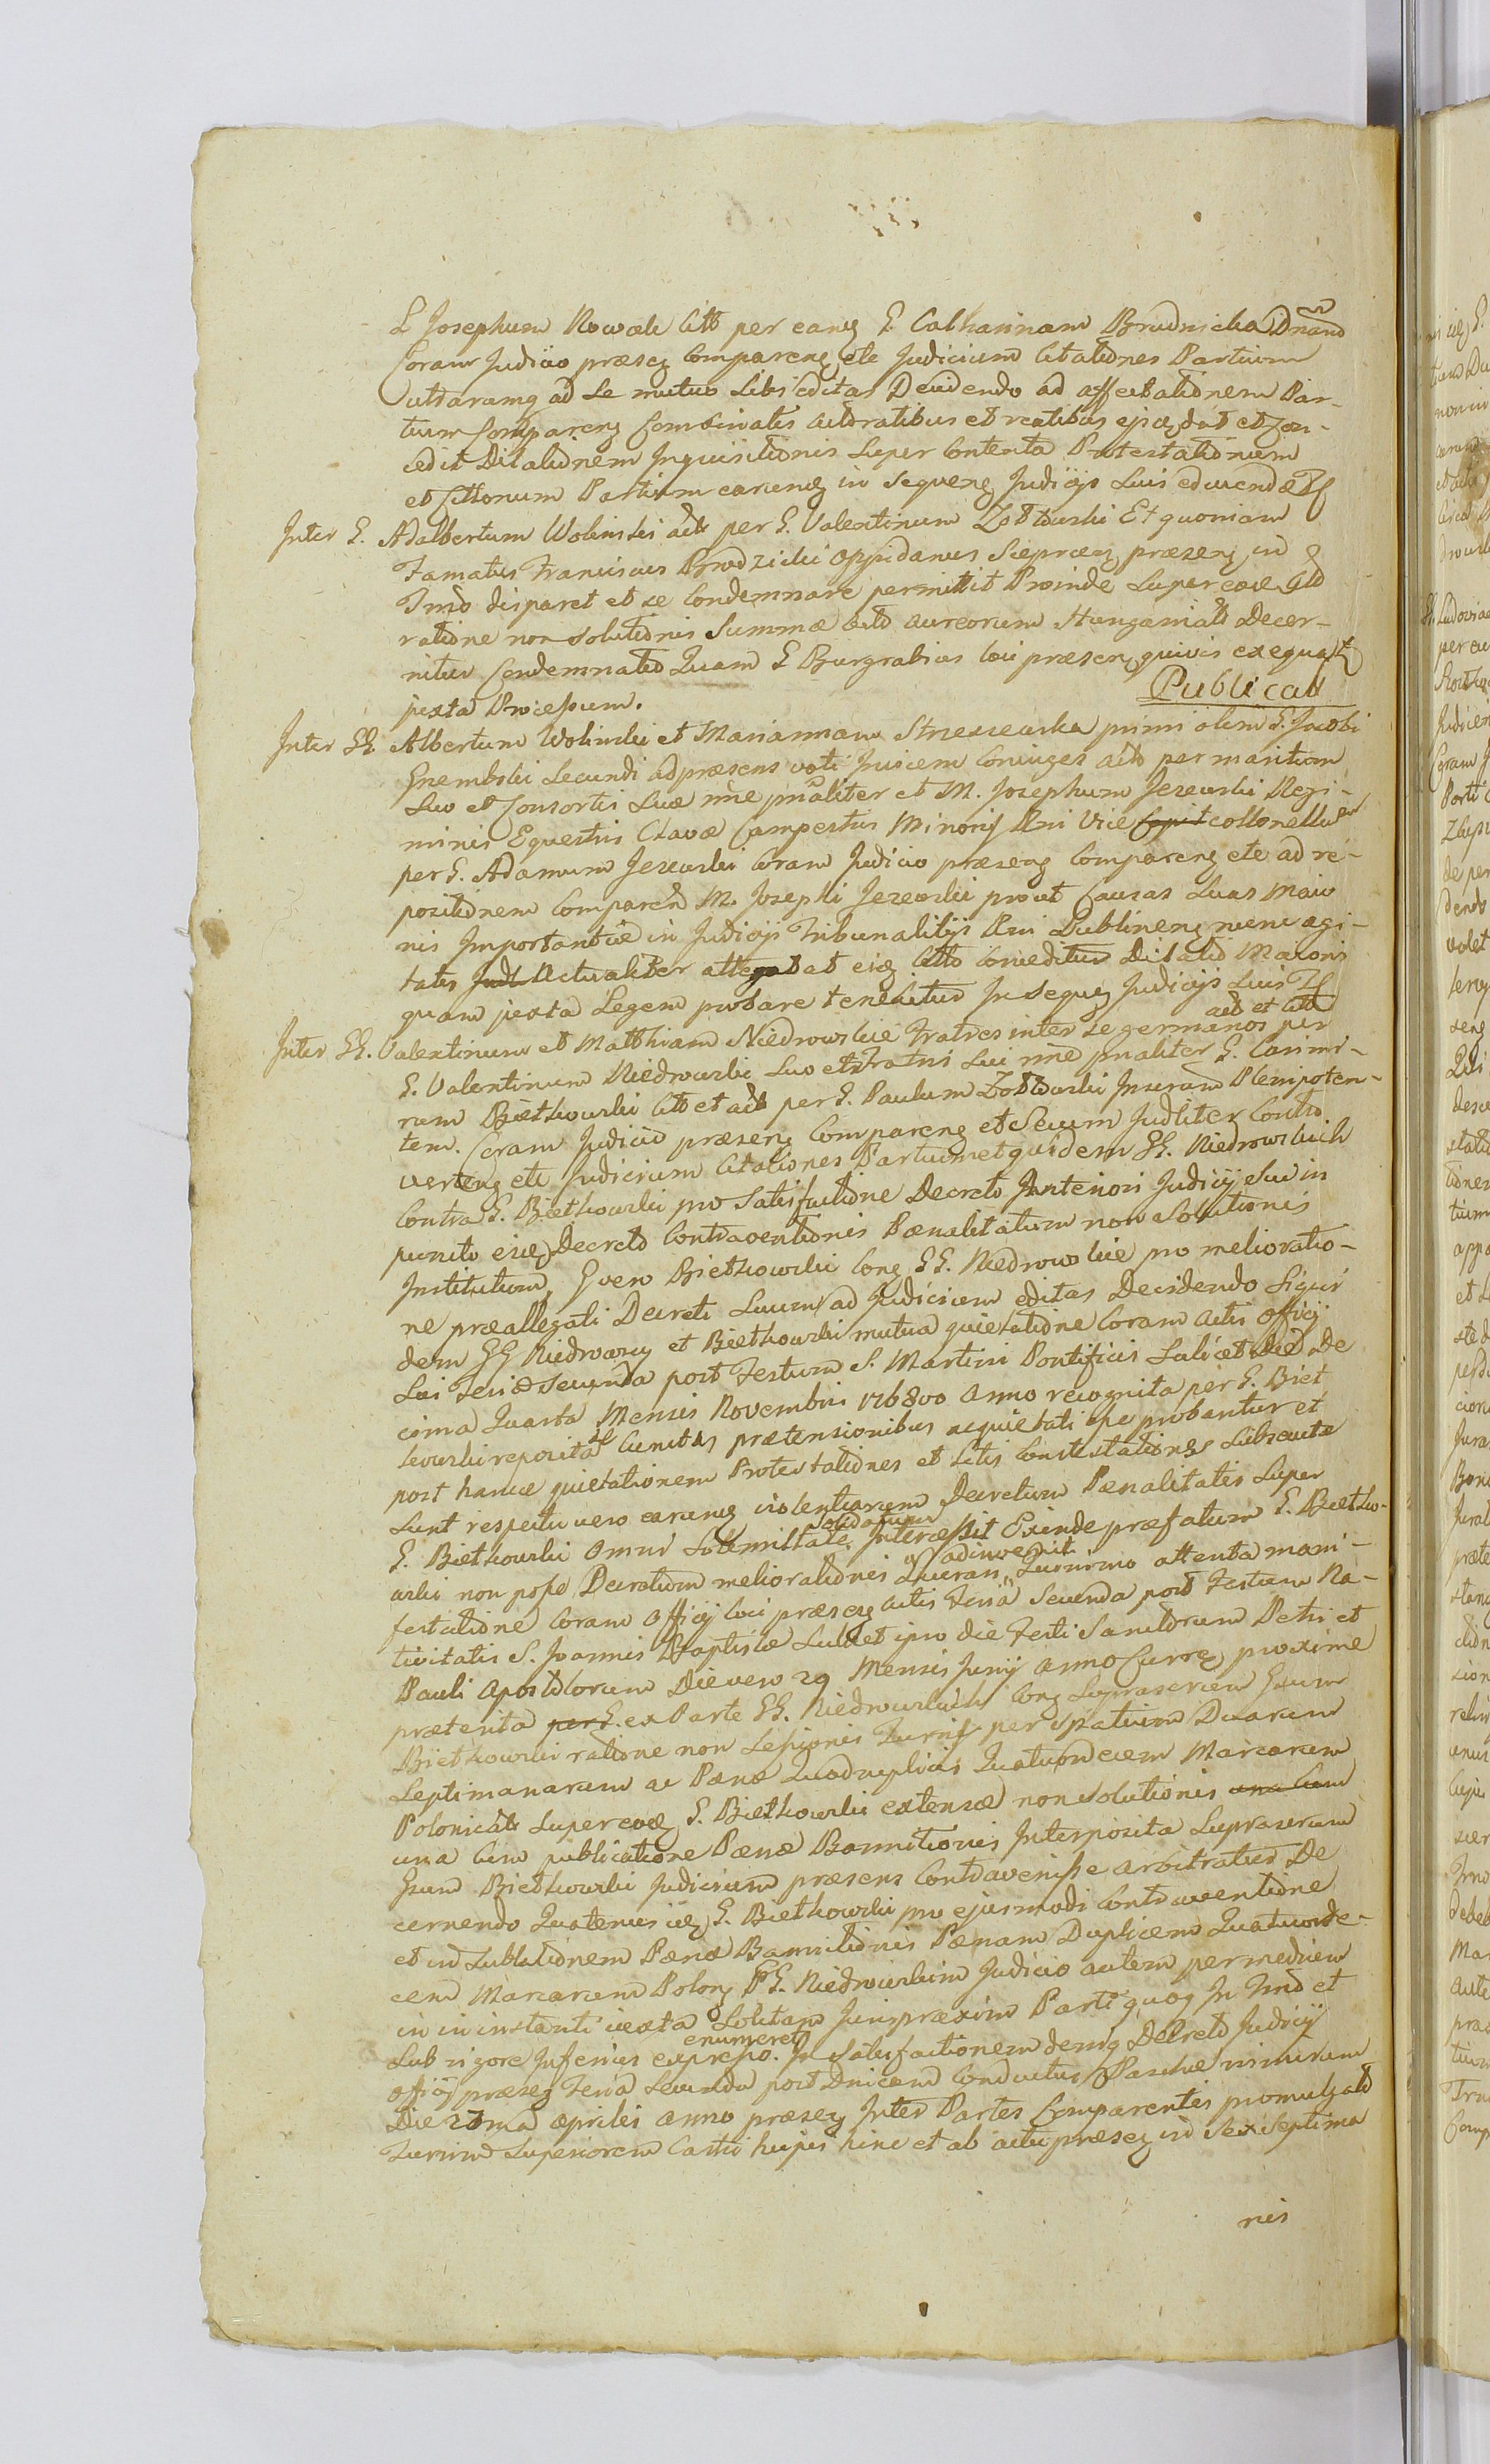 L Josephum Nowak Citt per eamq G. Catharinam Brudnicka Dnam
Coram Judicio præseq Compareng etc Judicium Citationes Partium
utrarumq ad Se mutuo Sibi editas Decidendo ad affectationem Par-
tium Compareng Combinatis actoratibus et reatibus ejsq dat et Con-
cedit Dilationem Inquisitionis Super Contenta Protestationum
et Cittonum Partium earumq in Sequeng Judicijs Suis educendæ
Inter G. Adalbertum Wolinski act per G. Valentinum Zołtowski Et quoniam
Famatus Franciscus Brodzicki oppidanus præseng in
Tmo disparet et se Condemnare permittit Proinde Super eoq Citt
ratione non solutionis Summæ octo aureorum Hungaricalt Decer-
nitur Condemnatio Quam G Burgrabius loci præseng quivis exequatr
juxta Processum.
Publicat
Inter GG Albertum Wolinski et Mariannam Strzeszewska primi olim G. Jacobi
Gnembski Secundi ad præsens voti Invicem Coniuges act per maritum
Suo et Consortis Suæ nne pnaliter et M. Josephum Jezewski Regi-
minis Equestris Clavæ Campestris Minoris Rni Vice collonellum
per G. Adamum Jezewski Coram Judicio præseng Compareng etc ad re-
positionem Comparen M. Josephi Jezewski prout Causas Suas Maio
ris Importantiæ in Judicijs Tribunalitijs Rni Lublineng nunc agi-
tatas Actualiter allegat et eiq Citto Conceditur Dilatio Maioris
quam juxta Legem probare tenebitur In Sequeq Judicijs Suis
act et Citt
Inter GG. Valentinum et Matthiam Niedrowskie Fratres inter se germanos per
G. Valentinum Niedrowski Suo et Fratris Sui nne pnaliter G. Casimi-
rum Biethowski Citt et act per G. Paulum Zołtowski Juratum Plenipoten-
tem. Coram Judicio præseng Compareng et Secum Judliter Contro
verteng etc Judicium Citationes Partium et quidem GG. Niedrowskich
Contra G. Biethowski pro Satisfactione Decreto Anteriori Judicij Sui in
puncto eiusq Decreto Contraventionis Pænalitatum non Solutionis
Institutum, G vero Biethowski Cong GG. Niedrowskie pro melioratio-
ne præallegati Decreti Suum ad Judicium editas Decidendo Siqui
dem GG Niedrowscy et Biethowski mutua quietatione Coram Actis Officij
Sui Feria Secunda post Festum S. Martini Pontificis Scilicet Die De
cima Quarta Mensis Novembris 176800 Anno recognita per G. Biet
howski reposita Cunctis prætensionibus acquietati Esse probantur et
post hance quietationem Protestationes et Litis Contestationes Subsecuta
Sunt respectu vero earumq violentiarum Decretum Pænalitatis Super
G. Biethowski Omni Solemnitate Solidatum Interessit Exinde præfatum G. Bietho-
wski non posse Decretum meliorationis adinvenit attenta mani-
festatione Coram Officij loci præseng Actis Feria Secunda post Festum Na-
tivitatis S. Joannis Baptistæ Scilicet ipso die Festi Sanctorum Petri et
Pauli Apostolorum Die vero 29 Mensis Junij Anno Curreg proxime
præterita per G. ex Parte GG. Niedrowskich Cong Suprascrium Gsum
Biethowski ratione non Sessionis Turris per spatium Duarum
Septimanarum ac Pænæ Quadruplicis Quatuordecem Marcarum
Polonicalt Super eoq G. Biethowski extensæ non Solutionis una Cum
una Cum publicatione Pænæ Bannitionis Interposita Suprascrum
Gsum Biethowski Judicium præsens Contravenisse arbitratur De
cernendo Quatenus iiq G. Biethowski pro ejusmodi Contraventione
et in Sublationem Pænæ Bannitionis Pænam Duplicem Quatuorde-
cem Marcarum Polong GG. Niedrowskim Judicio autem per medium
in in instanti iuxta Solitam Jurispraxim Parti quoq In Tmo et
Sub rigore Inferius expresso enumeret. In Satisfactionem demq Decreto Judicij
Officij præseng Feria Secunda post Dnicam Conductus Paschæ nimirum
Die 27ma Aprilis Anno præseng Inter Partes Comparentes promulgato
Turrim Superiorem Castri hujus hinc et ab actu præseng in Sex Septima
nis